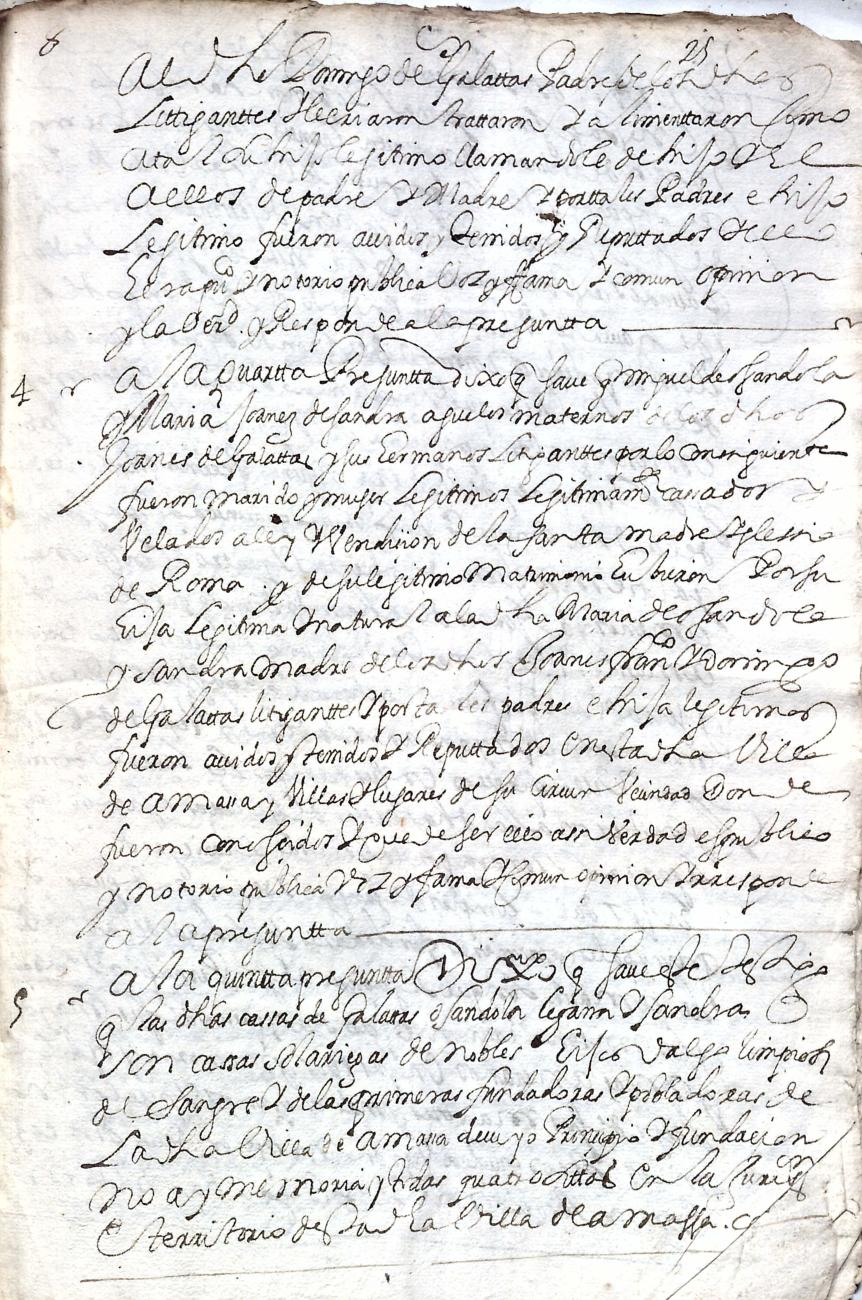 6
25
Al dho Domingo de Galattas Padre de los dhos
Littiganttes Y le criaron trattaron Y alimenttaron Como
a tal su hijo legitimo llamandole de hijo Y El
a ellos de padre Y Madre Y por tales Padres e hijo
Legitimo fueron avidos y tenidos y Reputtados Y ello
Era puco Y notorio publica Voz y ffama Y comun opinion
y la Verd. y Responde a la preguntta
4 A la quartta Preguntta dixo q save q miguel de osandola
y Maria Joanez de sandra aguelos maternos de los dhos
Joanes de Galatta y sus Hermanos Litiganttes por lo
fueron marido y muger Legitimos Legitimamte cassados Y
Velados a ley Y Vendicion de la santa madre Yglessia
de Roma y de su legitimo Matrimonio Tubieron Por su
Hija Legitima Y natural a la dha Maria de osandola
y sandra Madre de los dhos Joanes franco Y Domingo
de Galattas litiganttes Y por tales padres e hija legitimos
fueron avidos y tenidos Y Reputtados en esta dha Villa
de amassa y Villas Y lugares de su Circun Vecindad Donde
fueron conoscidos Y que de ser ello assi Verdad es publico
y notorio publica Voz y fama Y Comun opinion Y rresponde
a la preguntta
5 A la quintta preguntta Dixo q save este testigo
q las dhas cassas de Galattas osandola Y sandra
son cassas solariegas de nobles Hijos dalgo limpios
de sangre Y de las primeras fundadoras Y pobladoras de
La dha Villa de amassa de cuyo Principio Y fundacion
no ay memoria y todas quatro sittas en la Juron
e territorio desta dha Villa de amassa.